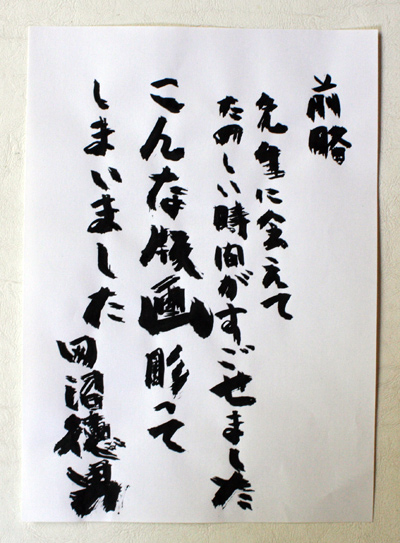 前略
先生に会えて
たのしい時間がすごせました
こんな版画彫って
しまいました 田沼徳男